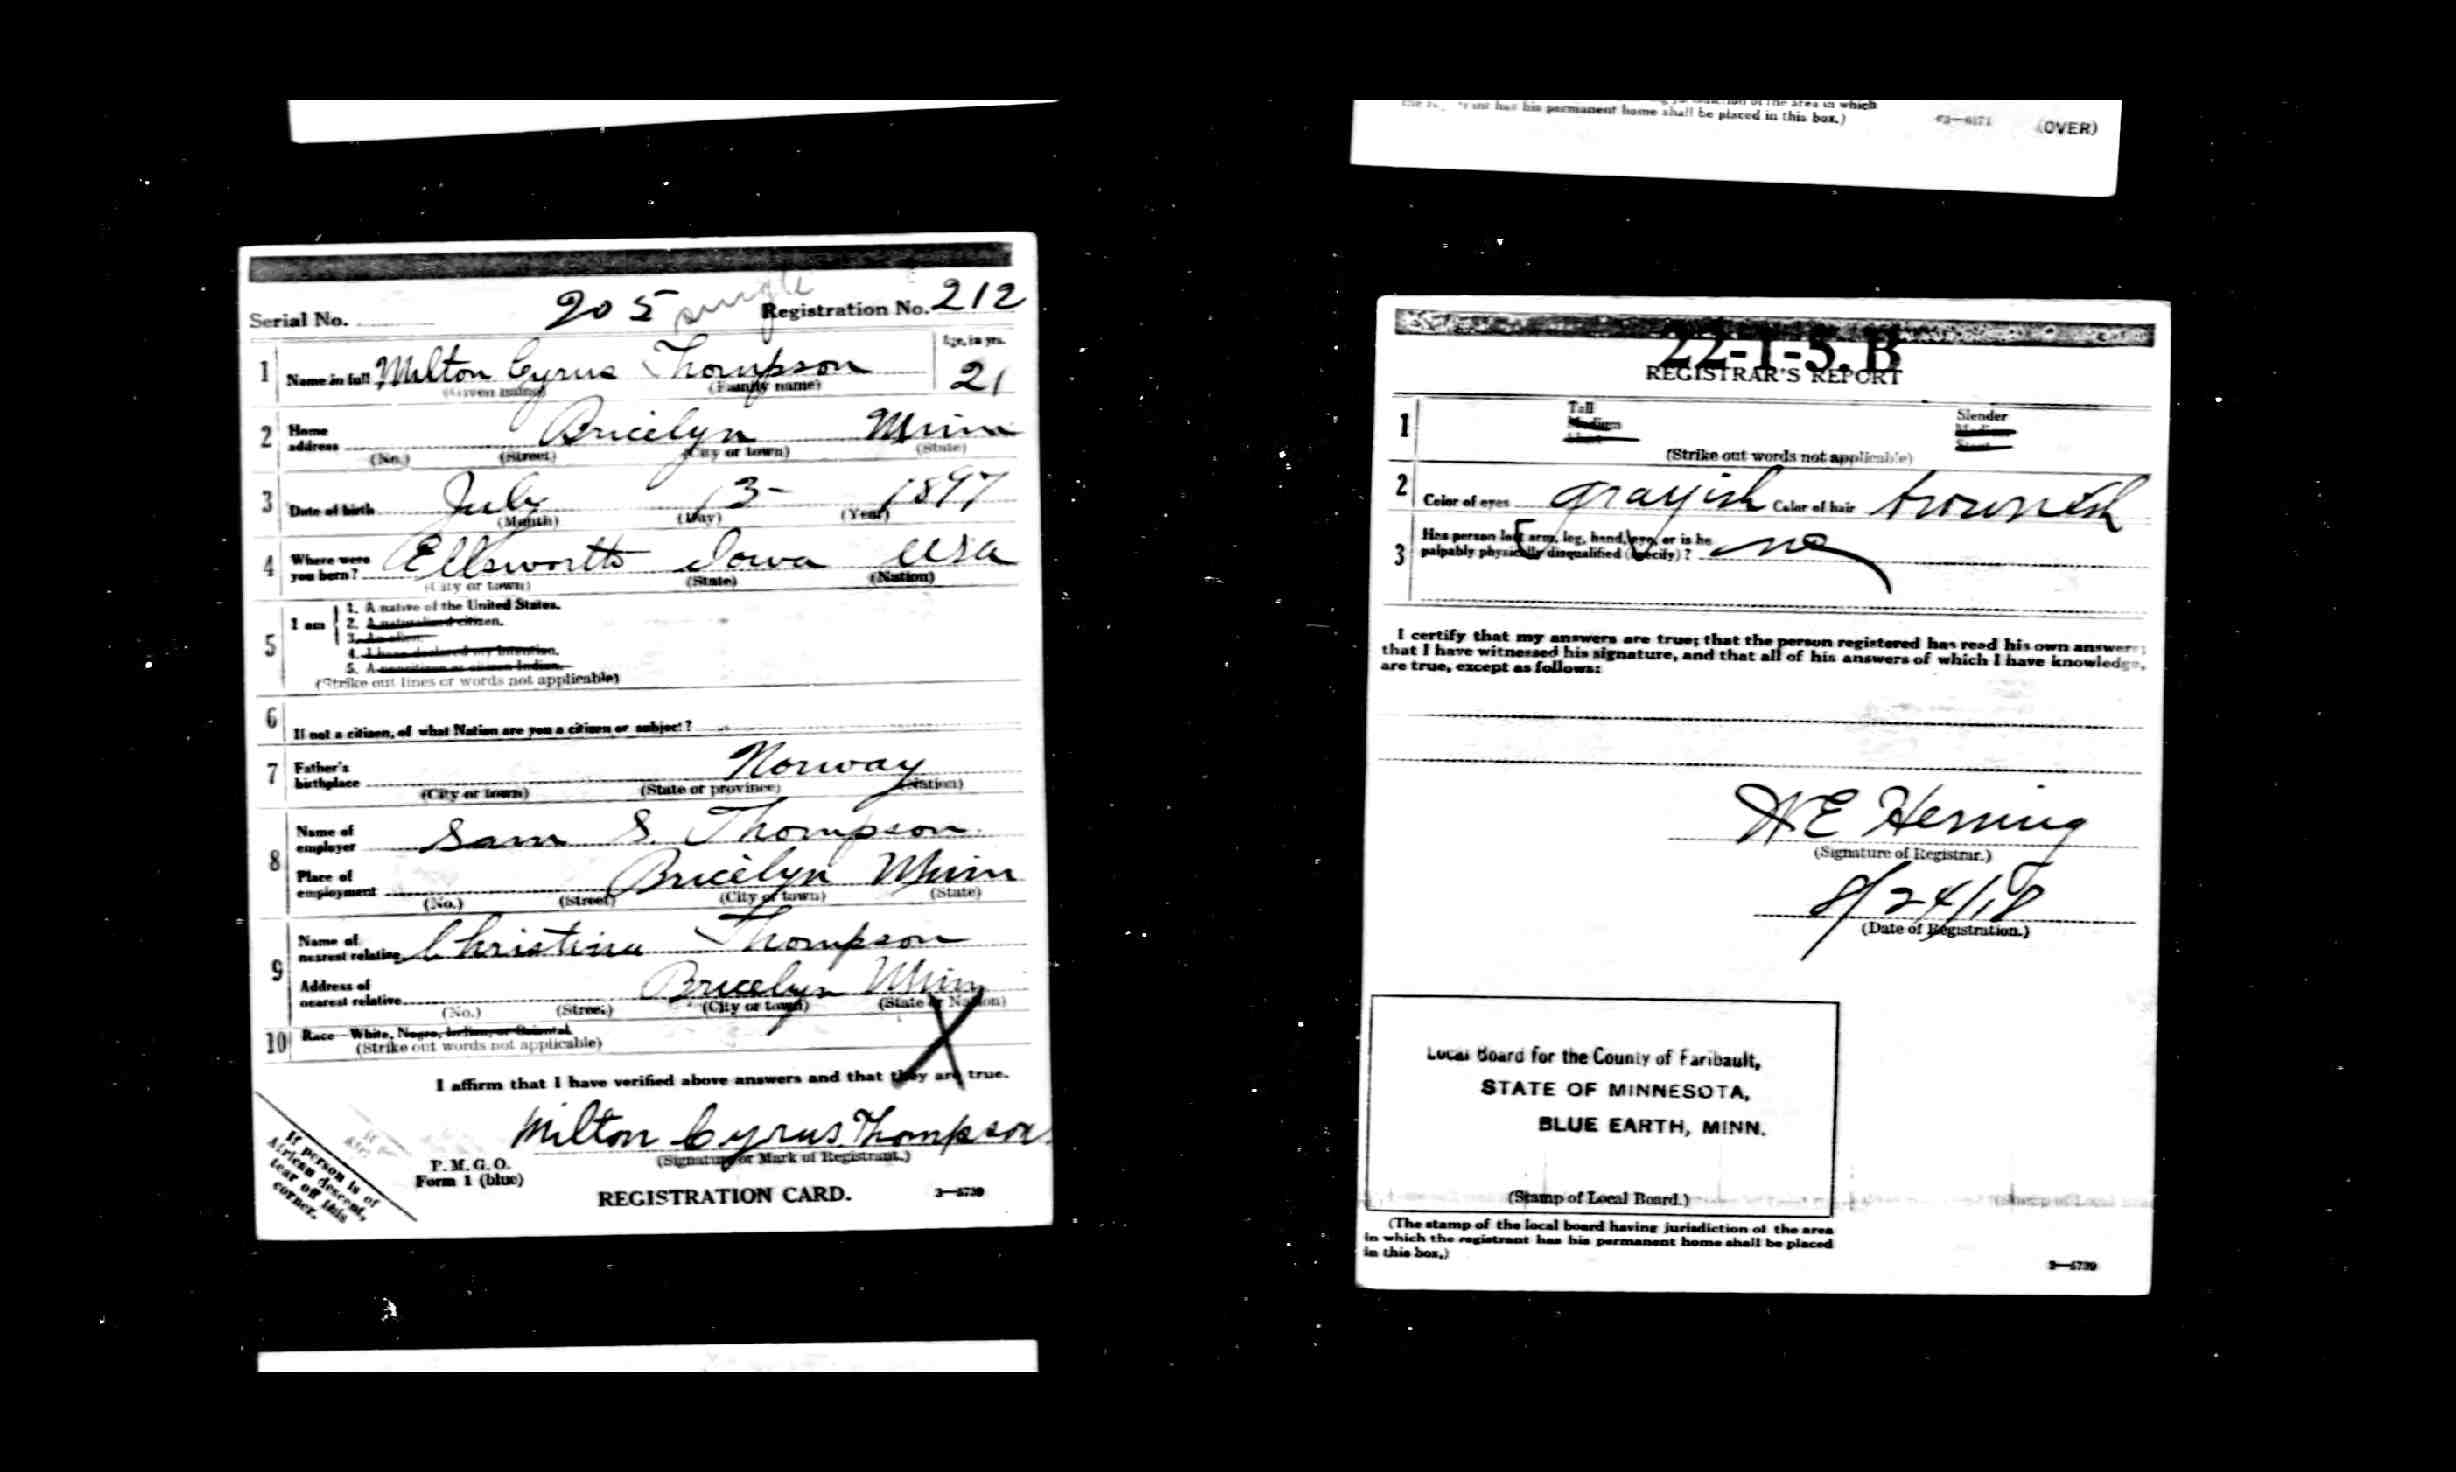 rant has his permanent home shall be placed in this box.)
(OVER)
Serial No. 205 single Registration No. 212
1 Name in full Milton Cyrus Thompson Age, in yrs. 21
(Given name) (Family name)
2 Home address Bricelyn Minn
(No.) (Street) (City or town) (State)
3 Date of birth July 13- 1897
(Month) (Day) (Year)
4 Where were you born? Ellsworth Iowa USA
(City or town) (State) (Nation)
5 I am
1. A native of the United States.
2. A naturalized citizen.
3. An alien.
4. I have declared my intention.
5. A noncitizen or citizen Indian.
(Strike out lines or words not applicable)
6 If not a citizen, of what Nation are you a citizen or subject?
7 Father's birthplace Norway
(City or town) (State or province) (Nation)
8 Name of employer Sam S. Thompson
Place of employment Bricelyn Minn
(No.) (Street) (City or town) (State)
9 Name of nearest relative Christina Thompson
Address of nearest relative Bricelyn Minn
(No.) (Street) (City or town) (State or Nation)
10 Race—White, Negro, Indian, or Oriental
(Strike out words not applicable)
I affirm that I have verified above answers and that they are true.
Milton Cyrus Thompson
(Signature or Mark of Registrant.)
P. M. G. O.
Form 1 (blue)
REGISTRATION CARD.
3—5739
If person is of
African descent,
tear off this
corner.
22-1-5. B
REGISTRAR'S REPORT
1 Tall Slender
Medium Medium
Short Stout
(Strike out words not applicable)
2 Color of eyes grayish Color of hair brownish
3 Has person lost arm, leg, hand, eye, or is he
palpably physically disqualified (specify)? no
I certify that my answers are true; that the person registered has read his own answers;
that I have witnessed his signature, and that all of his answers of which I have knowledge,
are true, except as follows:
(Signature of Registrar.)
8/24/18
(Date of Registration.)
Local Board for the County of Faribault,
STATE OF MINNESOTA,
BLUE EARTH, MINN.
(Stamp of Local Board.)
(The stamp of the local board having jurisdiction of the area
in which the registrant has his permanent home shall be placed
in this box.)
3—5739